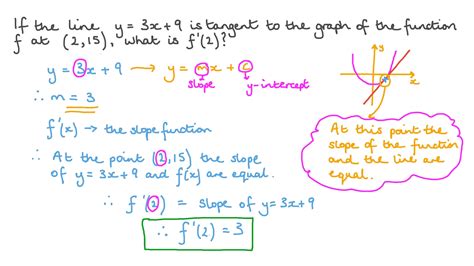 If the line y = 3x + 9 is tangent to the graph of the function
f at (2,15), what is f'(2)?
y = 3x + 9 → y = mx + c
slope
y-intercept
∴ m = 3
f'(x) → the slope function
∴ At the point (2,15) the slope
of y = 3x + 9 and f(x) are equal.
∴ f'(2) = slope of y = 3x + 9
∴ f'(2) = 3
y
x
At this point the
slope of the function
and the line are
equal.